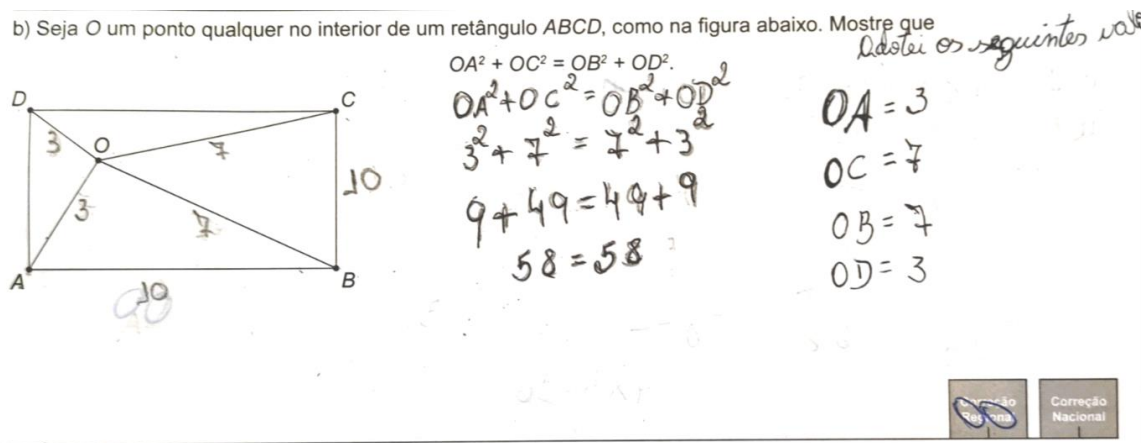 b) Seja O um ponto qualquer no interior de um retângulo ABCD, como na figura abaixo. Mostre que
Adotei os seguintes
OA² + OC² = OB² + OD².
OA²+OC²=OB²+OD²
3²+7²=7²+3²
9+49=49+9
58=58
OA=3
OC=7
OB=7
OD=3
D
C
3
O
7
10
3
7
A
B
10
Correção
Regional
Correção
Nacional